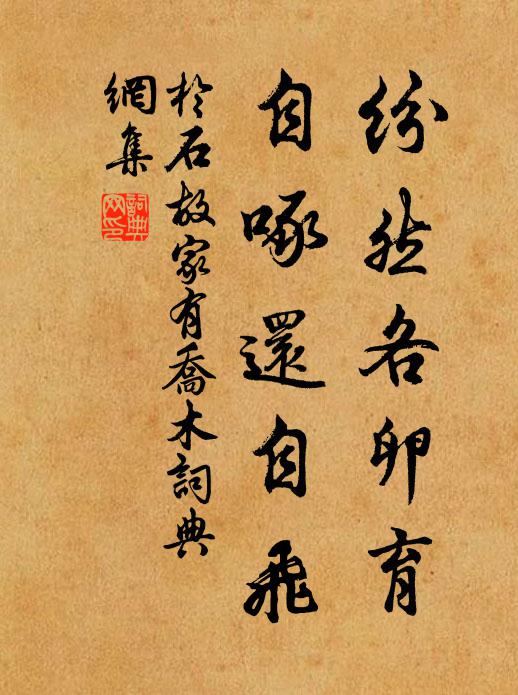 紛然各卵育
自啄還自飛
於石故家有喬木詞典
網集
詞典
网印